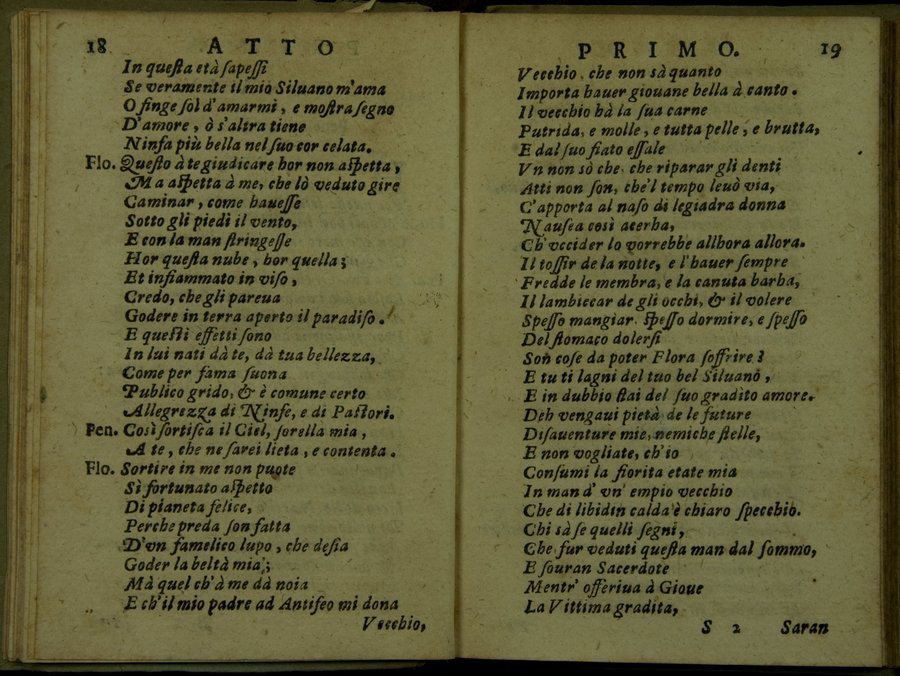 18 ATTO
In queſta età ſapeſſi
Se veramente il mio Siluano m'ama
O finge ſol d'amarmi, e moſtra ſegno
D'amore, ò s'altra tiene
Ninfa più bella nel ſuo cor celata.
Flo. Queſto à te giudicare hor non aſpetta,
Ma aſpetta à me, che lò veduto gire
Caminar, come haueſſe
Sotto gli piedi il vento,
E con la man ſtringeſſe
Hor queſta nube, hor quella;
Et infiammato in viſo,
Credo, che gli pareua
Godere in terra aperto il paradiſo.
E queſti effetti ſono
In lui nati dà te, dà tua bellezza,
Come per fama ſuona
Publico grido, & è comune certo
Allegrezza di Ninfe, e di Paſtori.
Pen. Coſì ſortiſca il Ciel, ſorella mia,
A te, che ne ſarei lieta, e contenta.
Flo. Sortire in me non puote
Sì fortunato aſpetto
Di pianeta felice,
Perche preda ſon fatta
D'vn famelico lupo, che deſia
Goder la beltà mia;
Mà quel ch'à me dà noia
E ch'il mio padre ad Antifeo mi dona
Vecchio,
PRIMO. 19
Vecchio, che non sà quanto
Importa hauer giouane bella à canto.
Il vecchio hà la ſua carne
Putrida, e molle, e tutta pelle, e brutta,
E dal ſuo fiato eſſale
Vn non sò che, che riparar gli denti
Atti non ſon, che'l tempo leuò via,
C'apporta al naſo di legiadra donna
Nauſea così acerba,
Ch'vccider lo vorrebbe allhora allora.
Il toſſir de la notte, e l'hauer ſempre
Fredde le membra, e la canuta barba,
Il lambiccar de gli occhi, & il volere
Speſſo mangiar, ſpeſſo dormire, e ſpeſſo
Del ſtomaco dolerſi
Son coſe da poter Flora ſoffrire?
E tu ti lagni del tuo bel Siluano,
E in dubbio ſtai del ſuo gradito amore.
Deh vengaui pietà de le future
Diſauenture mie, nemiche ſtelle,
E non vogliate, ch'io
Conſumi la fiorita etate mia
In man d'vn empio vecchio
Che di libidin calda è chiaro ſpecchio.
Chi sà ſe quelli ſegni,
Che fur veduti queſta man dal ſommo,
E ſouran Sacerdote
Mentr' offeriua à Gioue
La Vittima gradita,
S 2 Saran